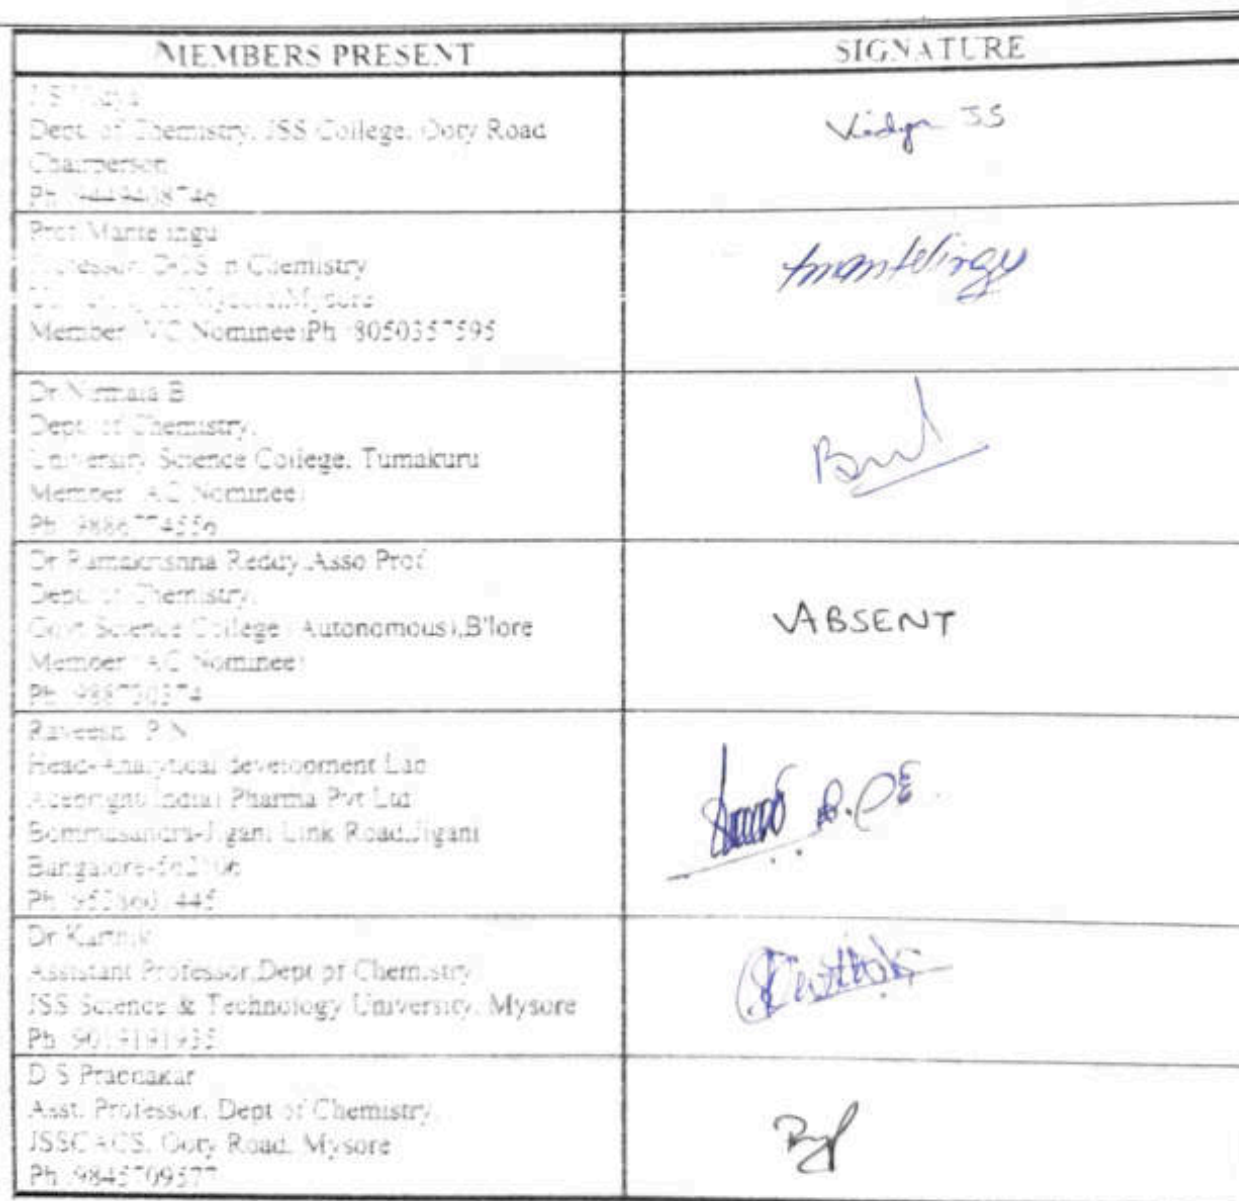 MEMBERS PRESENT
SIGNATURE
Dept. of Chemistry, JSS College, Ooty Road
Chairperson
Vidya JS
Prof
Professor, in Chemistry
Mysore
Member VC Nominee Ph 8050357595
Mantelingu
Dr Nirmala B
Dept. of Chemistry,
University Science College, Tumakuru
Member (AC Nominee)
Ph 9886774556
Dr Ramakrishna Reddy, Asso Prof
Dept. of Chemistry,
Govt Science College (Autonomous), B'lore
Member (AC Nominee)
Ph
ABSENT
Raveesh P N
Head-Analytical development Lab
(India) Pharma Pvt Ltd
Bommasandra-Jigani Link Road, Jigani
Bangalore-562106
Ph
Dr Karthik
Assistant Professor, Dept of Chemistry
JSS Science & Technology University, Mysore
Ph 9019191935
D S Prabhakar
Asst. Professor, Dept of Chemistry,
JSSCACS, Ooty Road, Mysore
Ph 9845709577